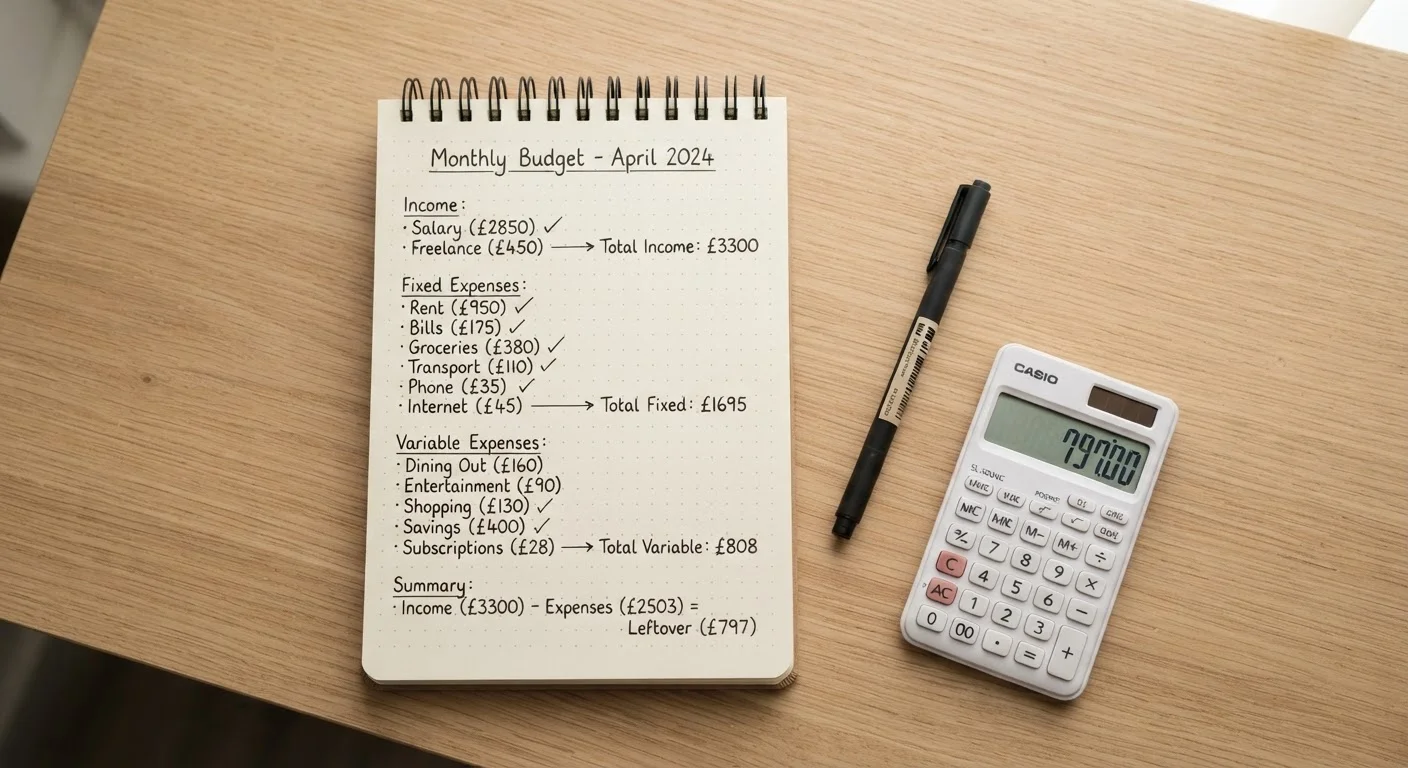 Monthly Budget - April 2024
Income:
· Salary (£2850) ✓
· Freelance (£450) → Total Income: £3300
Fixed Expenses:
· Rent (£950) ✓
· Bills (£175) ✓
· Groceries (£380) ✓
· Transport (£110) ✓
· Phone (£35) ✓
· Internet (£45) → Total Fixed: £1695
Variable Expenses:
· Dining Out (£160)
· Entertainment (£90)
· Shopping (£130) ✓
· Savings (£400) ✓
· Subscriptions (£28) → Total Variable: £808
Summary:
· Income (£3300) - Expenses (£2503) =
Leftover (£797)
CASIO
M- M+ ÷
7 8 9 ×
C 4 5 6 −
AC 1 2 3 +
0 00 · =